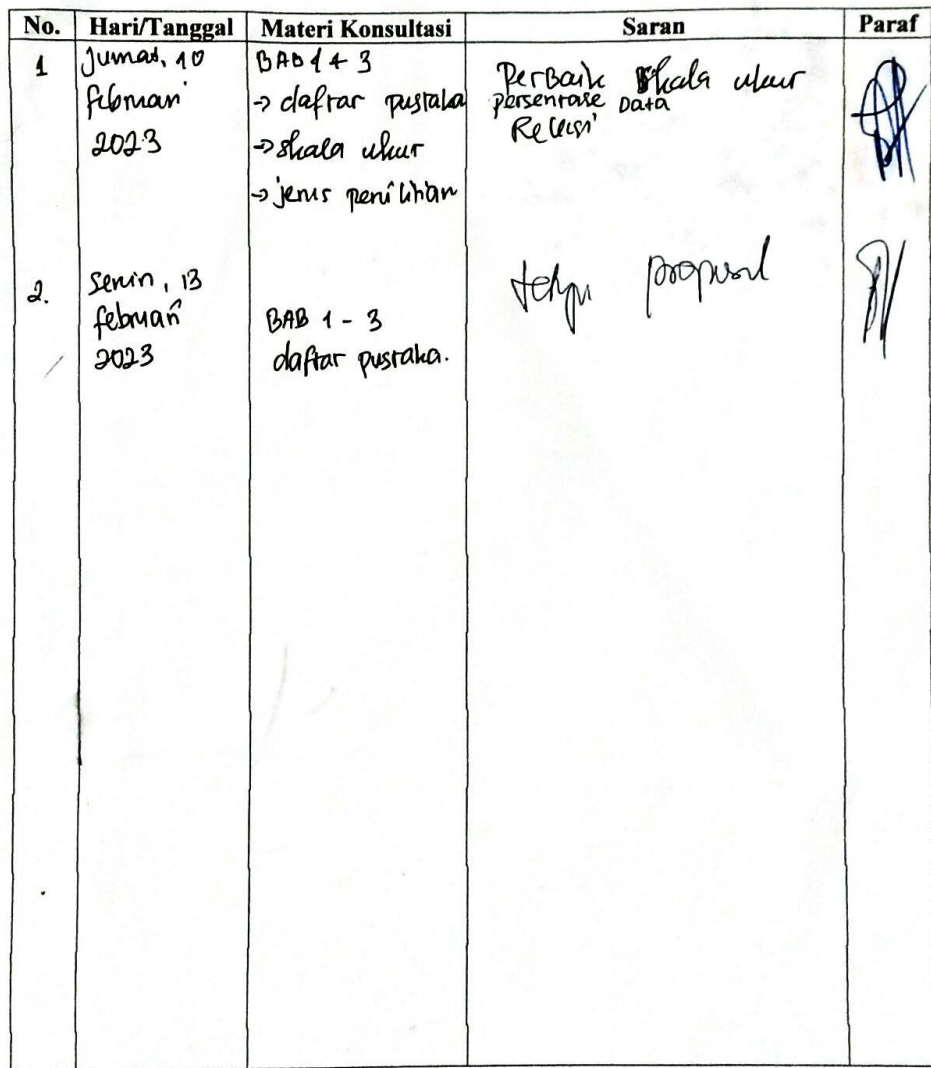 No. Hari/Tanggal Materi Konsultasi Saran Paraf
1 Jumat, 10 februari 2023
BAB 1 + 3
-> daftar pustaka
-> skala ukur
-> jenis penilitian
Perbaik skala ukur
persentase Data
2. Senin, 13 februari 2023
BAB 1 - 3
daftar pustaka.
proposal